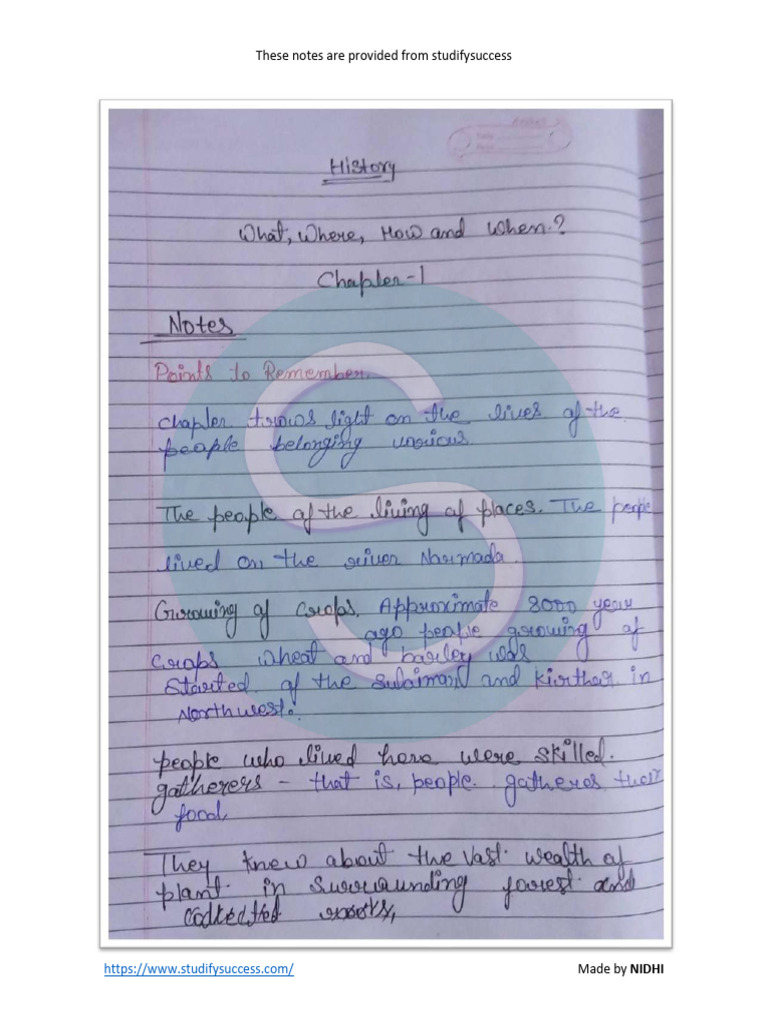 These notes are provided from studifysuccess
History
What, Where, How and When.?
Chapter-1
Notes
Points to Remember.
Chapter trows light on the lives of the
people belonging
The people of the living of places. The people
lived on the river Narmada.
Growing of Crops. Approximate 8000 year
ago people growing of
Crops wheat and barley was
Started of the Sulaiman and Kirthar in
Northwest.
people who lived here were skilled.
gatherers - that is, people.. gatheres their
food,
They knew about the vast wealth of
plant in surrounding forest and
collected roots,
https://www.studifysuccess.com/ Made by NIDHI